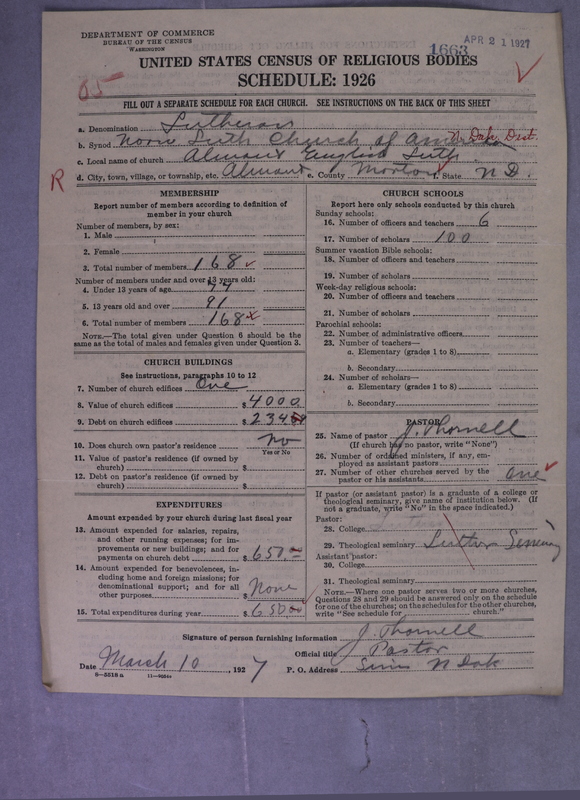 DEPARTMENT OF COMMERCE
BUREAU OF THE CENSUS
WASHINGTON
APR 21 1927
1663
UNITED STATES CENSUS OF RELIGIOUS BODIES
SCHEDULE: 1926
FILL OUT A SEPARATE SCHEDULE FOR EACH CHURCH. SEE INSTRUCTIONS ON THE BACK OF THIS SHEET
a. Denomination Lutheran
b. Synod Norw Luth Church of America N. Dak. Dist.
c. Local name of church Almont English Luth
d. City, town, village, or township, etc. Almont e. County Morton f. State N D.
R
MEMBERSHIP
Report number of members according to definition of
member in your church
Number of members, by sex:
1. Male
2. Female
3. Total number of members 168
Number of members under and over 13 years old:
4. Under 13 years of age 77
5. 13 years old and over 91
6. Total number of members 168
NOTE.—The total given under Question 6 should be the
same as the total of males and females given under Question 3.
CHURCH BUILDINGS
See instructions, paragraphs 10 to 12
7. Number of church edifices One
8. Value of church edifices $ 4000.
9. Debt on church edifices $
10. Does church own pastor's residence No
Yes or No
11. Value of pastor's residence (if owned by
church) $
12. Debt on pastor's residence (if owned by
church) $
EXPENDITURES
Amount expended by your church during last fiscal year
13. Amount expended for salaries, repairs,
and other running expenses; for im-
provements or new buildings; and for
payments on church debt $ 650.
14. Amount expended for benevolences, in-
cluding home and foreign missions; for
denominational support; and for all
other purposes $ None
15. Total expenditures during year $ 650
CHURCH SCHOOLS
Report here only schools conducted by this church
Sunday schools:
16. Number of officers and teachers 6
17. Number of scholars 100
Summer vacation Bible schools:
18. Number of officers and teachers
19. Number of scholars
Week-day religious schools:
20. Number of officers and teachers
21. Number of scholars
Parochial schools:
22. Number of administrative officers
23. Number of teachers—
a. Elementary (grades 1 to 8)
b. Secondary
24. Number of scholars—
a. Elementary (grades 1 to 8)
b. Secondary
PASTOR
25. Name of pastor J. Thornell
(If church has no pastor, write "None")
26. Number of ordained ministers, if any, em-
ployed as assistant pastors
27. Number of other churches served by the
pastor or his assistants One
If pastor (or assistant pastor) is a graduate of a college or
theological seminary, give name of institution below. (If
not a graduate, write "No" in the space indicated.)
Pastor:
28. College
29. Theological seminary Luther Seminary
Assistant pastor:
30. College
31. Theological seminary
NOTE.—Where one pastor serves two or more churches,
Questions 28 and 29 should be answered only on the schedule
for one of the churches; on the schedules for the other churches,
write "See schedule for church."
Signature of person furnishing information J. Thornell
Official title Pastor
Date March 10, 1927
P. O. Address Sims N Dak